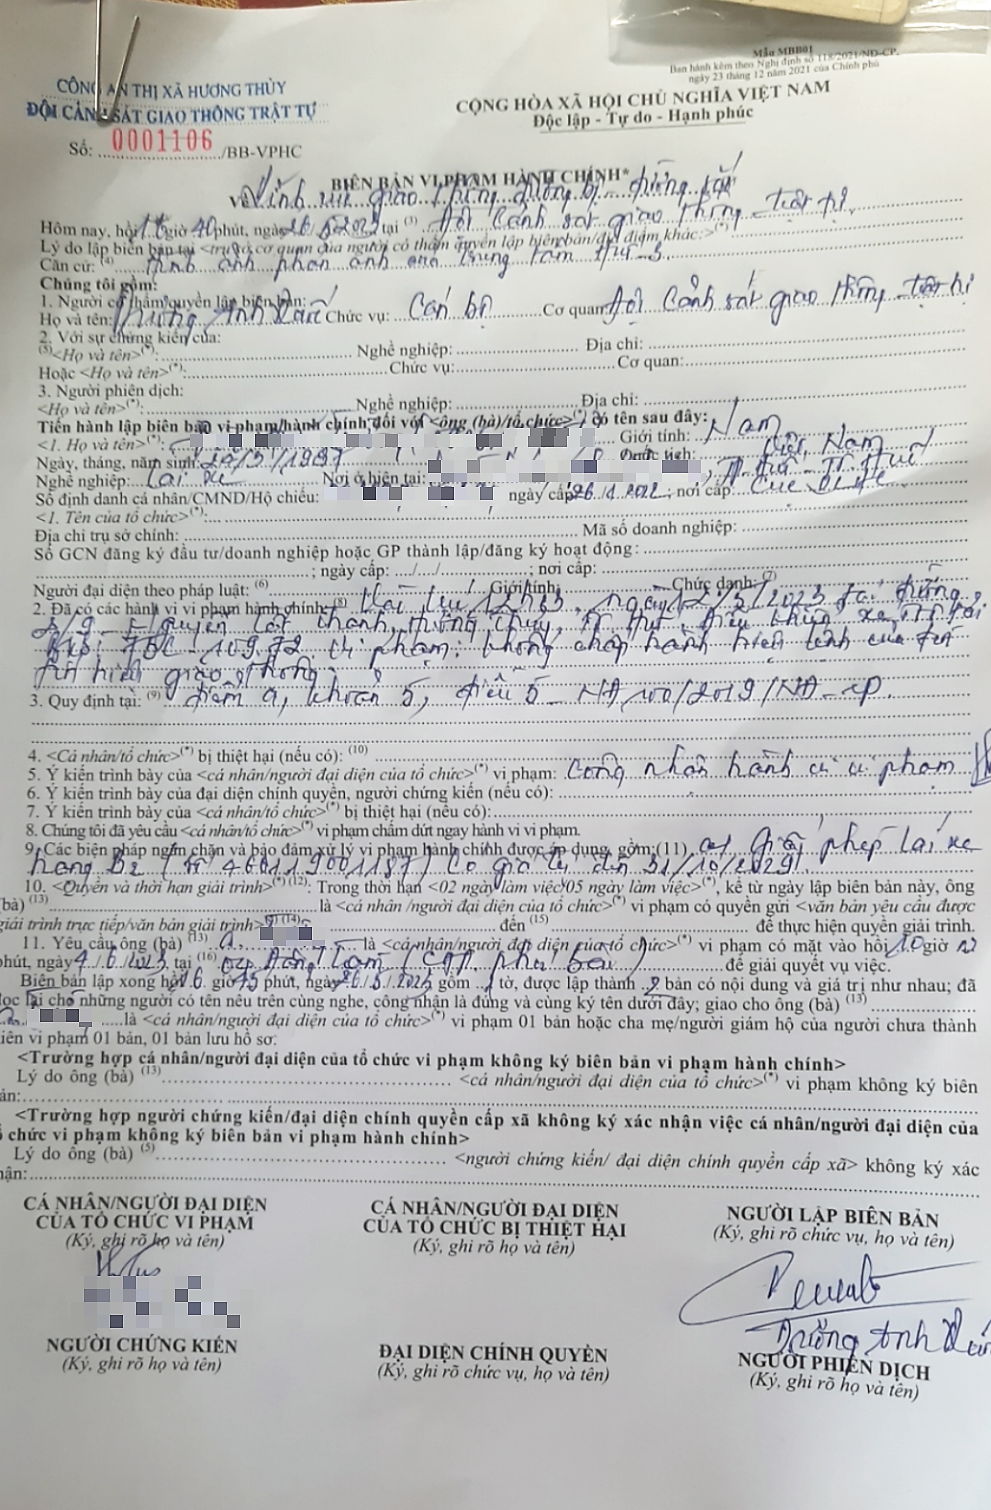 Mẫu MBB01
Ban hành kèm theo Nghị định số 118/2021-NĐ-CP.
ngày 23 tháng 12 năm 2021 của Chính phủ
CÔNG AN THỊ XÃ HƯƠNG THỦY
ĐỘI CẢNH SÁT GIAO THÔNG TRẬT TỰ
CỘNG HÒA XÃ HỘI CHỦ NGHĨA VIỆT NAM
Độc lập - Tự do - Hạnh phúc
Số: 0001106 /BB-VPHC
BIÊN BẢN VI PHẠM HÀNH CHÍNH*
Về Lĩnh vực giao thông đường bộ - đường sắt
Hôm nay, hồi 16 giờ 40 phút, ngày 26/5/2023 tại (3) Đội Cảnh sát giao thông - trật tự
Lý do lập biên bản tại <trụ sở cơ quan của người có thẩm quyền lập biên bản/địa điểm khác: >(*)
Căn cứ: (4) hình ảnh phản ánh của trung tâm
Chúng tôi gồm:
1. Người có thẩm quyền lập biên bản:
Họ và tên: Trương Anh Chức vụ: Cán bộ Cơ quan: Đội Cảnh sát giao thông - trật tự
2. Với sự chứng kiến của:
(5)<Họ và tên>(*): Nghề nghiệp: Địa chỉ:
Hoặc <Họ và tên>(*): Chức vụ: Cơ quan:
3. Người phiên dịch:
<Họ và tên>(*): Nghề nghiệp: Địa chỉ:
Tiến hành lập biên bản vi phạm hành chính đối với <ông (bà)/tổ chức>(*) có tên sau đây:
<1. Họ và tên>(*): Giới tính: Nam
Ngày, tháng, năm sinh: /5/1997 Quốc tịch: Việt Nam
Nghề nghiệp: Lái xe Nơi ở hiện tại: , TP Huế - T.T.Huế
Số định danh cá nhân/CMND/Hộ chiếu: ngày cấp: 26/1/2022; nơi cấp: Cục
<1. Tên của tổ chức>(*):
Địa chỉ trụ sở chính: Mã số doanh nghiệp:
Số GCN đăng ký đầu tư/doanh nghiệp hoặc GP thành lập/đăng ký hoạt động:
; ngày cấp: / / ; nơi cấp:
Người đại diện theo pháp luật: (6) Giới tính: Chức danh: (7)
2. Đã có các hành vi vi phạm hành chính: (8) Vào lúc 12h33, ngày 12/5/2023 tại đường
2/9 - Nguyễn Tất Thành, Hương Thủy, TT Huế, điều khiển xe ô tô tải
BKS: 75C-109.72 vi phạm: không chấp hành hiệu lệnh của đèn
tín hiệu giao thông
3. Quy định tại: (9) điểm a, khoản 5, điều 5 - NĐ 100/2019/NĐ-CP
4. <Cá nhân/tổ chức>(*) bị thiệt hại (nếu có): (10)
5. Ý kiến trình bày của <cá nhân/người đại diện của tổ chức>(*) vi phạm: Công nhận hành vi vi phạm
6. Ý kiến trình bày của đại diện chính quyền, người chứng kiến (nếu có):
7. Ý kiến trình bày của <cá nhân/tổ chức>(*) bị thiệt hại (nếu có):
8. Chúng tôi đã yêu cầu <cá nhân/tổ chức>(*) vi phạm chấm dứt ngay hành vi vi phạm.
9. Các biện pháp ngăn chặn và bảo đảm xử lý vi phạm hành chính được áp dụng, gồm:(11) 01 giấy phép lái xe
hạng B2 (N: 460119001187) Có giá trị đến 31/10/2029
10. <Quyền và thời hạn giải trình>(*) (12): Trong thời hạn <02 ngày làm việc/05 ngày làm việc>(*), kể từ ngày lập biên bản này, ông
(bà) (13) là <cá nhân /người đại diện của tổ chức>(*) vi phạm có quyền gửi <văn bản yêu cầu được
giải trình trực tiếp/văn bản giải trình>(*) (14) đến (15) để thực hiện quyền giải trình.
11. Yêu cầu ông (bà) (13) là <cá nhân/người đại diện của tổ chức>(*) vi phạm có mặt vào hồi 10 giờ
phút, ngày 9/6/2023, tại (16) để giải quyết vụ việc.
Biên bản lập xong hồi 16 giờ 45 phút, ngày 26/5/2023 gồm 1 tờ, được lập thành 2 bản có nội dung và giá trị như nhau; đã
đọc lại cho những người có tên nêu trên cùng nghe, công nhận là đúng và cùng ký tên dưới đây; giao cho ông (bà) (13)
là <cá nhân/người đại diện của tổ chức>(*) vi phạm 01 bản hoặc cha mẹ/người giám hộ của người chưa thành
iên vi phạm 01 bản, 01 bản lưu hồ sơ.
<Trường hợp cá nhân/người đại diện của tổ chức vi phạm không ký biên bản vi phạm hành chính>
Lý do ông (bà) (13) <cá nhân/người đại diện của tổ chức>(*) vi phạm không ký biên
ản:
<Trường hợp người chứng kiến/đại diện chính quyền cấp xã không ký xác nhận việc cá nhân/người đại diện của
ổ chức vi phạm không ký biên bản vi phạm hành chính>
Lý do ông (bà) (5) <người chứng kiến/ đại diện chính quyền cấp xã> không ký xác
hận:
CÁ NHÂN/NGƯỜI ĐẠI DIỆN
CỦA TỔ CHỨC VI PHẠM
(Ký, ghi rõ họ và tên)
CÁ NHÂN/NGƯỜI ĐẠI DIỆN
CỦA TỔ CHỨC BỊ THIỆT HẠI
(Ký, ghi rõ họ và tên)
NGƯỜI LẬP BIÊN BẢN
(Ký, ghi rõ chức vụ, họ và tên)
Trương Anh
NGƯỜI CHỨNG KIẾN
(Ký, ghi rõ họ và tên)
ĐẠI DIỆN CHÍNH QUYỀN
(Ký, ghi rõ chức vụ, họ và tên)
NGƯỜI PHIÊN DỊCH
(Ký, ghi rõ họ và tên)